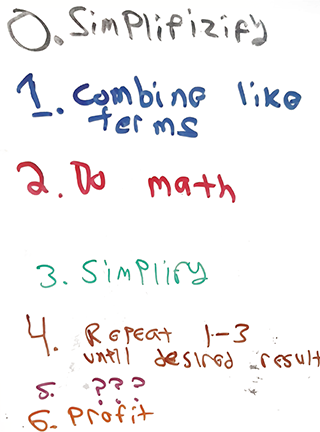 0. Simplifizify
1. Combine like
terms
2. Do math
3. Simplify
4. Repeat 1-3
until desired result
5. ???
6. Profit